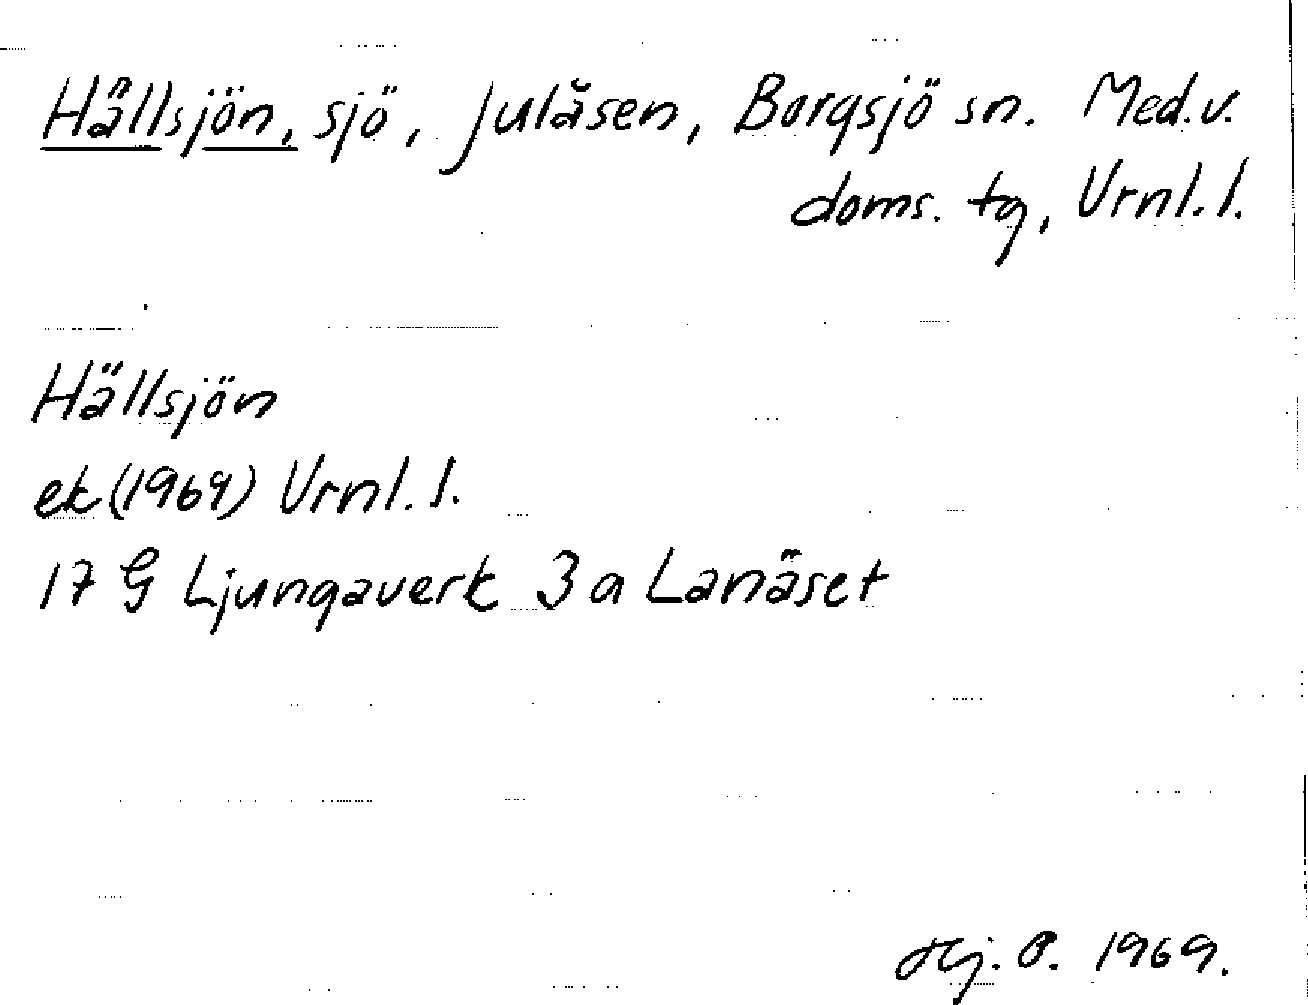 Hällsjön, sjö, Julåsen, Borgsjö sn. Med.v.
doms. tg, Vrnl. l.
Hällsjön
ek (1969) Vrnl. l.
17 G Ljungaverk 3 a Lanäset
Hj. P. 1969.